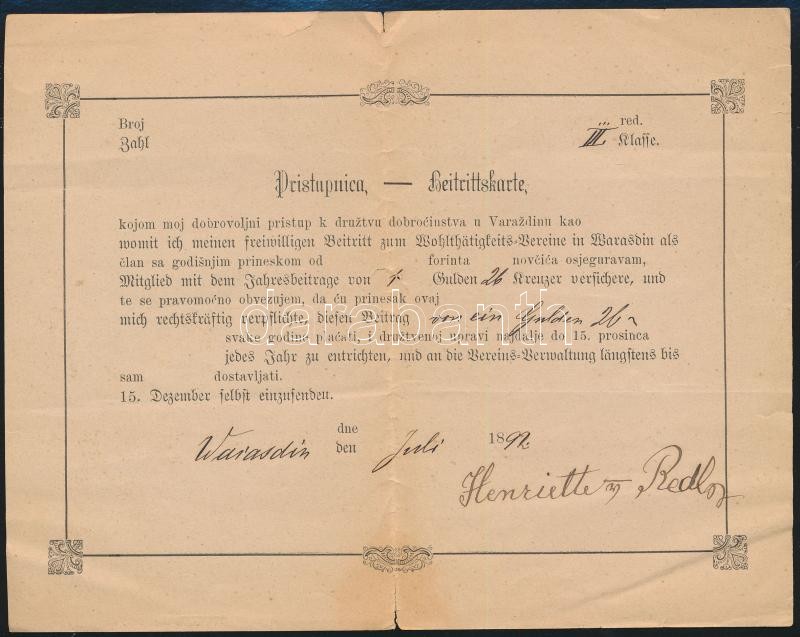 Broj III red.
Zahl Klasse.
Pristupnica, — Beitrittskarte,
kojom moj dobrovoljni pristup k družtvu dobročinstva u Varaždinu kao
womit ich meinen freiwilligen Beitritt zum Wohlthätigkeits-Vereine in Warasdin als
član sa godišnjim prineskom od forinta novčića osjeguravam,
Mitglied mit dem Jahresbeitrage von 1 Gulden 26 Kreuzer versichere, und
te se pravomoćno obvezujem, da ću prinesak ovaj
mich rechtskräftig verpflichte, diesen Beitrag von ein Gulden 26
svake godine plaćati, i družtvenoj upravi najdalje do 15. prosinca
jedes Jahr zu entrichten, und an die Vereins-Verwaltung längstens bis
sam dostavljati.
15. Dezember selbst einzusenden.
dne
Warasdin den Juli 1892.
Henriette v Redl
darabanth